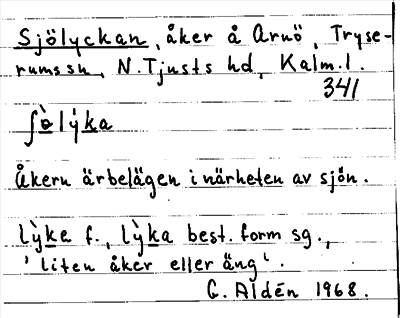 Sjölyckan, åker å Arnö, Tryse-
rums sn, N. Tjusts hd, Kalm. l.
341
ʃɵ̀lýka
Åkern är belägen i närheten av sjön.
lỳke f., lỳka best. form sg.,
'liten åker eller äng'.
G. Aldén 1968.